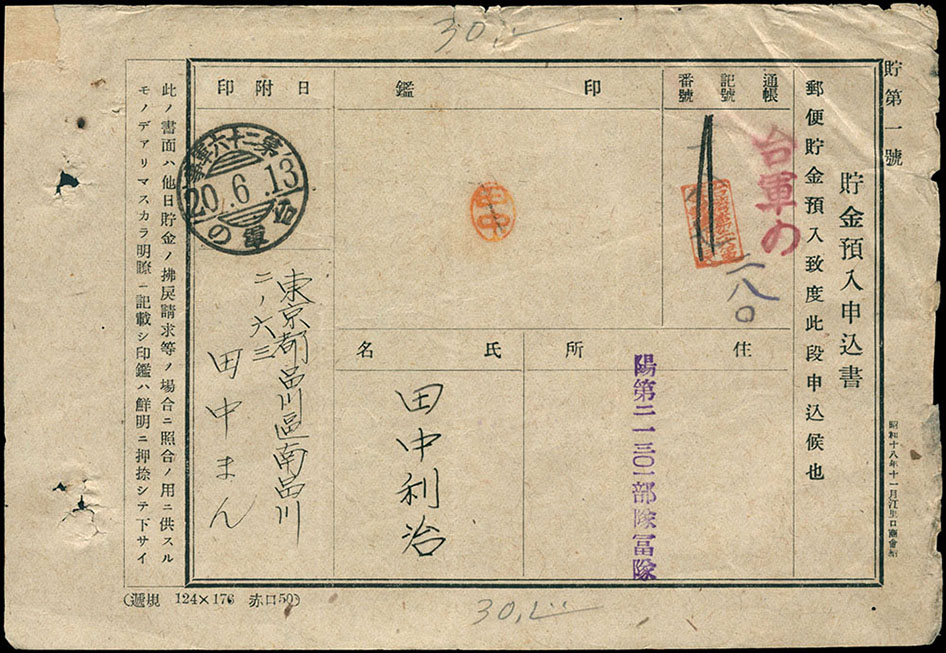 30,―
貯第一號
貯金預入申込書
郵便貯金預入致度此段申込候也
昭和十八年十一月江里口商會納
通帳記號番號
台軍の
二八〇
印鑑
田中
日附印
第二十六軍事
20.6.13
台軍の
住所
陽第三一三〇一部隊冨隊
氏名
田中利治
東京都品川區南品川
二ノ六三
田中まん
此ノ書面ハ他日貯金ノ拂戻請求等ノ場合ニ照合ノ用ニ供スル
モノデアリマスカラ明瞭ニ記載シ印鑑ハ鮮明ニ押捺シテ下サイ
(遞規 124×176 赤口50)
30,―